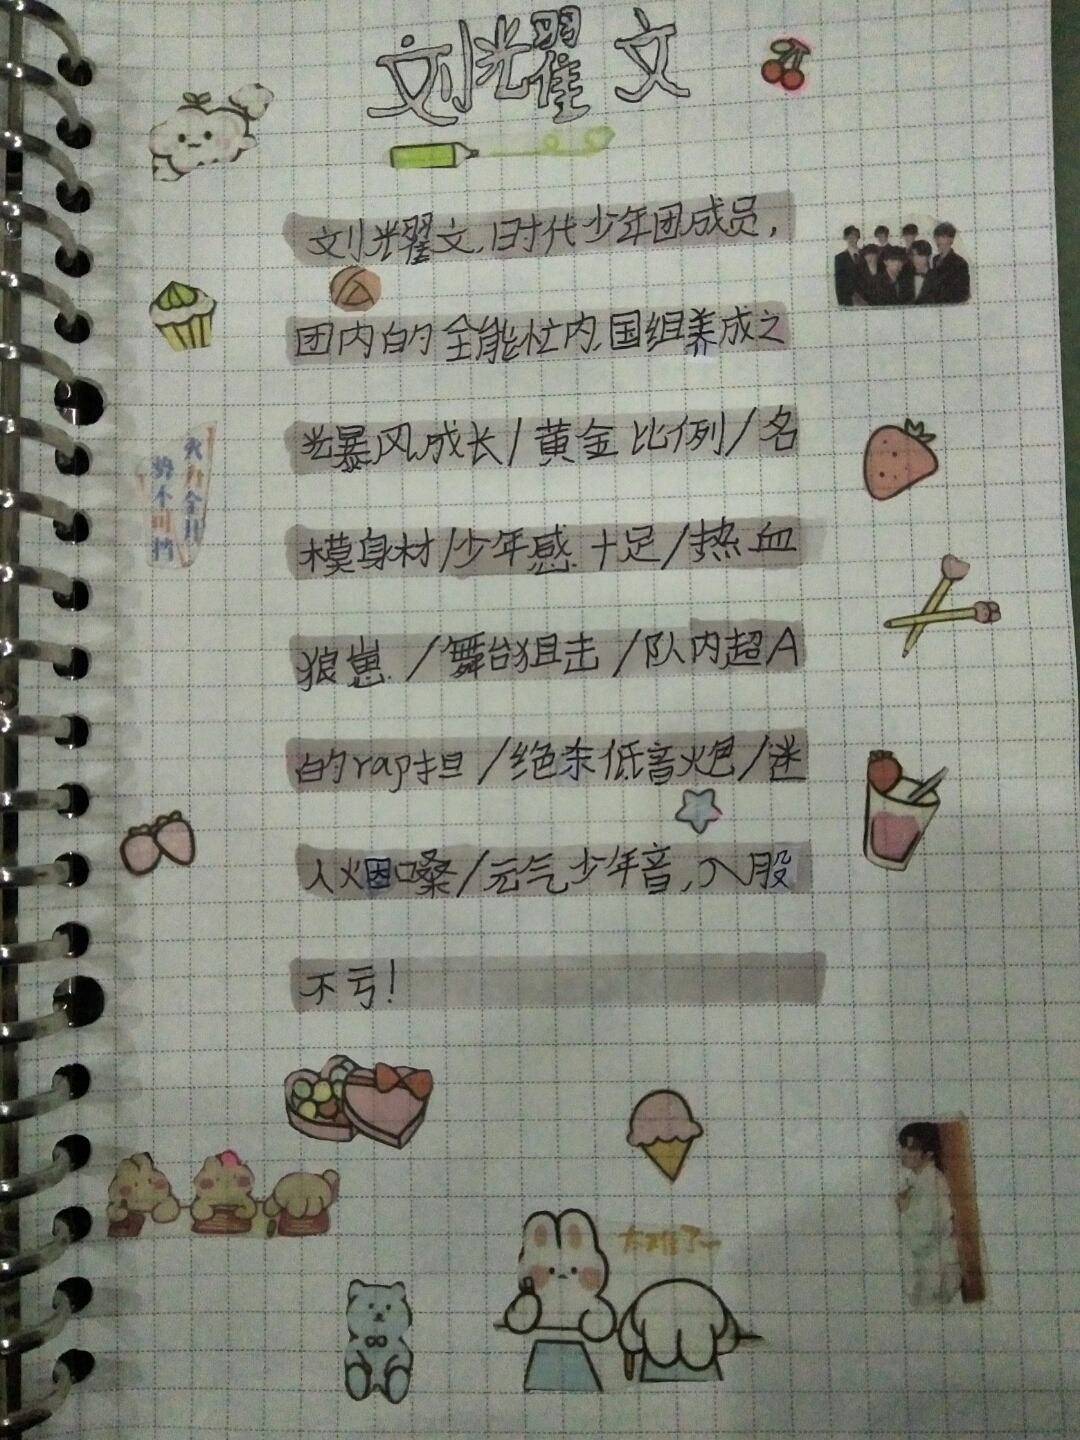 刘耀文
刘耀文,时代少年团成员,
团内的全能忙内,国组养成之
光暴风成长/黄金比例/名
模身材/少年感十足/热血
狼崽/舞台狙击/队内超A
的rap担/绝杀低音炮/迷
人烟嗓/元气少年音,入股
不亏!
火力全开
势不可挡
太难了